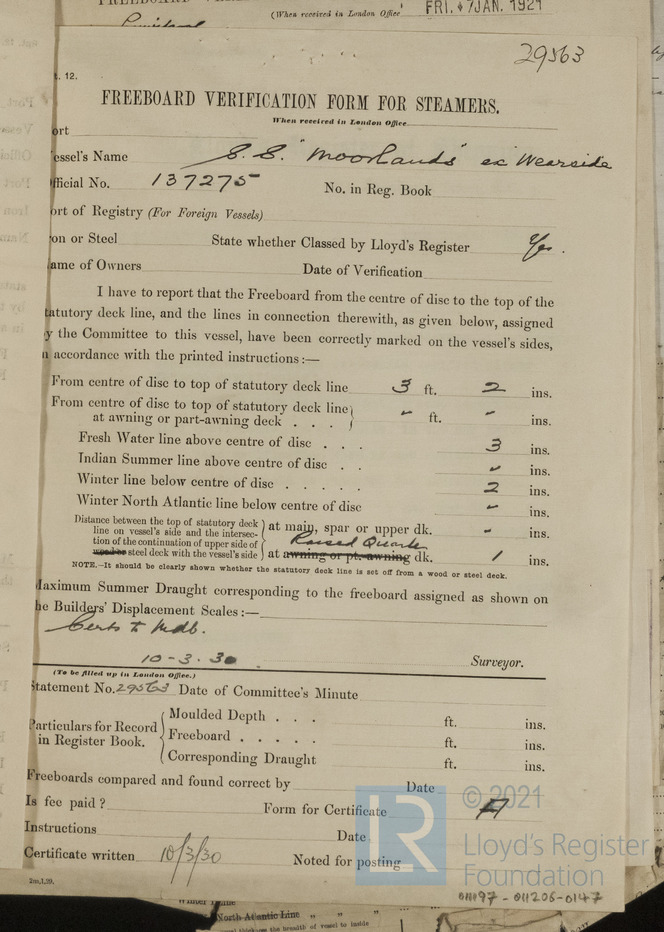 (When received in London Office
FRI. 7 JAN. 1921
29563
t. 12.
FREEBOARD VERIFICATION FORM FOR STEAMERS.
When received in London Office
ort
essel's Name S.S. "Moorlands" ex Wearside
fficial No. 137275 No. in Reg. Book
ort of Registry (For Foreign Vessels)
on or Steel State whether Classed by Lloyd's Register Yes.
ame of Owners Date of Verification
I have to report that the Freeboard from the centre of disc to the top of the
tatutory deck line, and the lines in connection therewith, as given below, assigned
y the Committee to this vessel, have been correctly marked on the vessel's sides,
n accordance with the printed instructions:—
From centre of disc to top of statutory deck line 3 ft. 2 ins.
From centre of disc to top of statutory deck line
at awning or part-awning deck . . . - ft. - ins.
Fresh Water line above centre of disc . . . 3 ins.
Indian Summer line above centre of disc . . - ins.
Winter line below centre of disc . . . . . 2 ins.
Winter North Atlantic line below centre of disc - ins.
Distance between the top of statutory deck
line on vessel's side and the intersec-
tion of the continuation of upper side of
wood or steel deck with the vessel's side
at main, spar or upper dk. -
Raised Quarter
at awning or pt.-awning dk. 1 ins.
NOTE.—It should be clearly shown whether the statutory deck line is set off from a wood or steel deck.
Maximum Summer Draught corresponding to the freeboard assigned as shown on
he Builders' Displacement Scales:—
Certs to Mdb.
10-3-30 Surveyor.
(To be filled up in London Office.)
Statement No. 29563 Date of Committee's Minute
Particulars for Record
in Register Book.
Moulded Depth . . . ft. ins.
Freeboard . . . . . ft. ins.
Corresponding Draught ft. ins.
Freeboards compared and found correct by Date
Is fee paid? Form for Certificate A
Instructions Date
Certificate written 10/3/30 Noted for posting
2m,1,29.
© 2021
Lloyd's Register
Foundation
LR
011197 - 011206-0147
North Atlantic Line " "